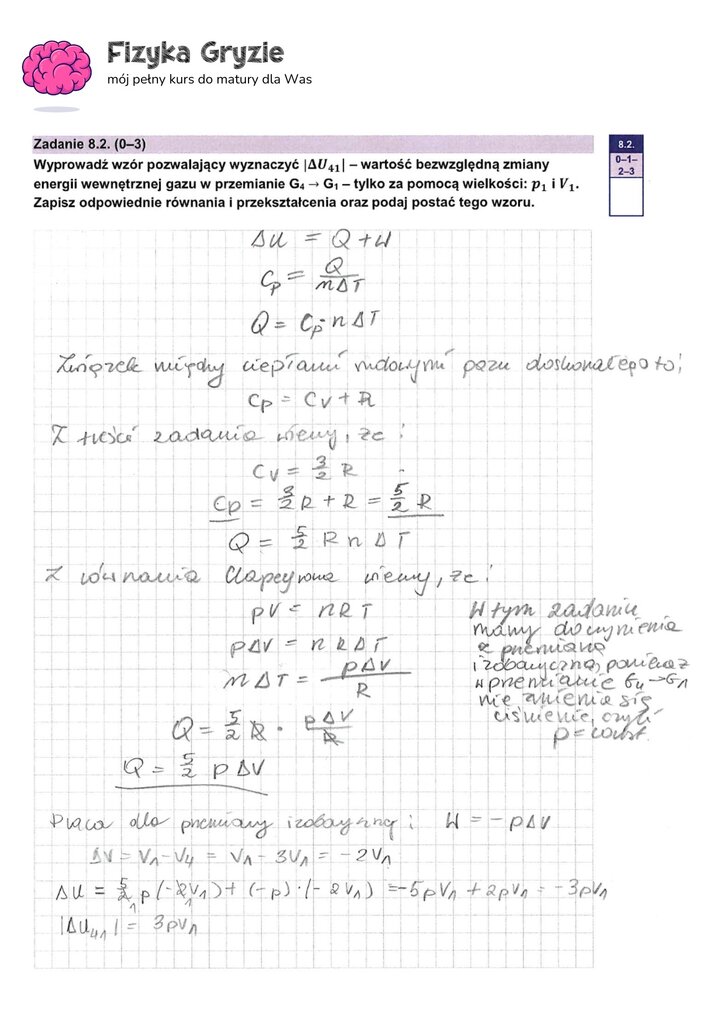 Fizyka Gryzie
mój pełny kurs do matury dla Was
Zadanie 8.2. (0–3)
8.2.
0–1–
2–3
Wyprowadź wzór pozwalający wyznaczyć |ΔU₄₁| – wartość bezwzględną zmiany
energii wewnętrznej gazu w przemianie G₄ → G₁ – tylko za pomocą wielkości: p₁ i V₁.
Zapisz odpowiednie równania i przekształcenia oraz podaj postać tego wzoru.
ΔU = Q + W
Cp = Q / nΔT
Q = Cp · n ΔT
Związek między ciepłami molowymi gazu doskonałego to:
Cp = Cv + R
Z treści zadania wiemy, że:
Cv = 3/2 R
Cp = 3/2 R + R = 5/2 R
Q = 5/2 R n ΔT
Z równania Clapeyrona wiemy, że:
pV = nRT
pΔV = nRΔT
nΔT = pΔV / R
Q = 5/2 R · pΔV / R
Q = 5/2 p ΔV
W tym zadaniu
mamy do czynienia
z przemianą
izobaryczną, ponieważ
w przemianie G₄→G₁
nie zmienia się
ciśnienie, czyli
p = const.
Praca dla przemiany izobarycznej: W = – pΔV
ΔV = V₁ – V₄ = V₁ – 3V₁ = – 2V₁
ΔU = 5/2 p (– 2V₁) + (– p) · (– 2V₁) = – 5pV₁ + 2pV₁ = – 3pV₁
|ΔU₄₁| = 3pV₁